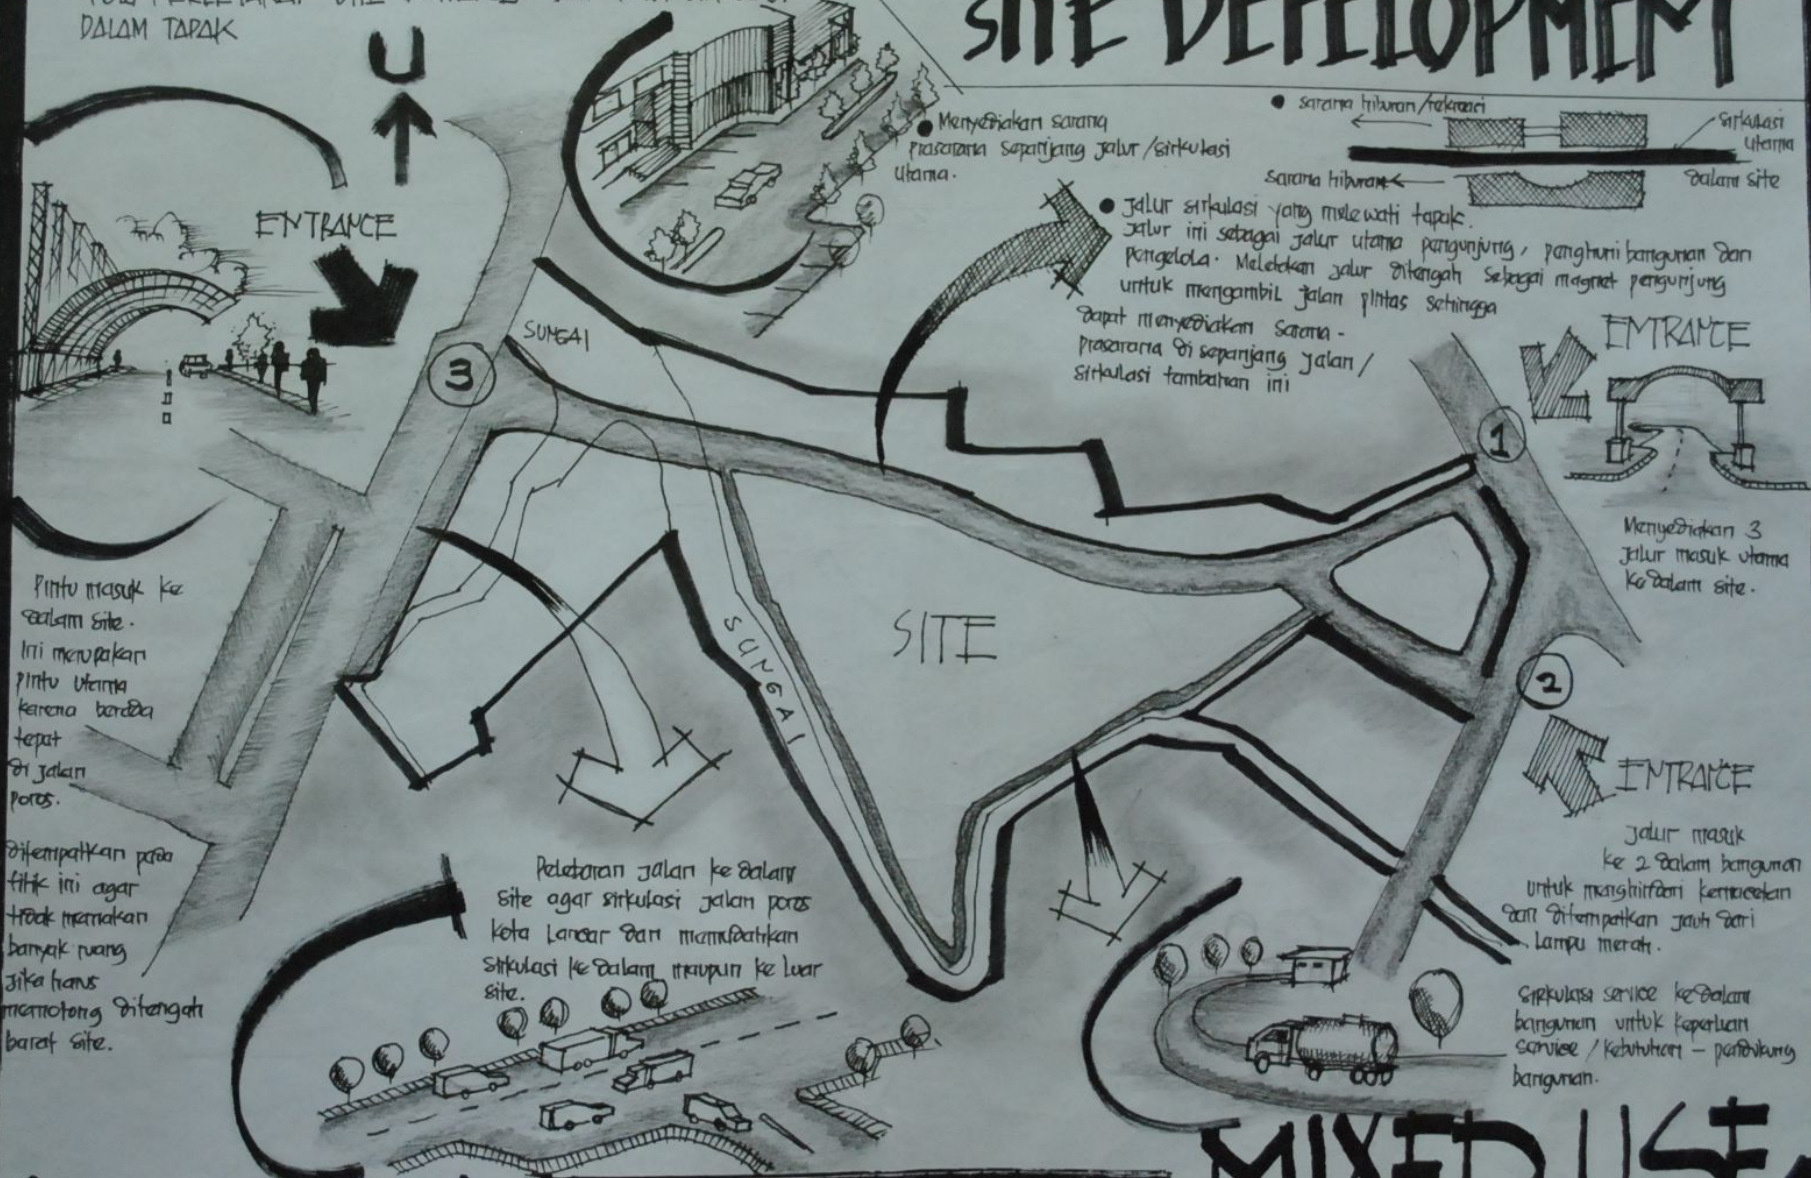 DALAM TAPAK
U
SITE DEVELOPMENT
ENTRANCE
• Menyediakan sarana
prasarana sepanjang jalur/sirkulasi
utama.
• sarana hiburan/rekreasi
sirkulasi
utama
sarana hiburan
dalam site
• Jalur sirkulasi yang melewati tapak.
Jalur ini sebagai jalur utama pengunjung, penghuni bangunan dan
pengelola. Meletakan jalur ditengah sebagai magnet pengunjung
untuk mengambil jalan pintas sehingga
dapat menyediakan sarana -
prasarana di sepanjang jalan/
sirkulasi tambahan ini
SUNGAI
3
ENTRANCE
1
Menyediakan 3
jalur masuk utama
kedalam site.
Pintu masuk ke
dalam site.
Ini merupakan
pintu utama
karena berada
tepat
di jalan
poros.
ditempatkan pada
titik ini agar
tidak memakan
banyak ruang
jika harus
memotong ditengah
barat site.
SUNGAI
SITE
2
ENTRANCE
Jalur masuk
ke 2 dalam bangunan
untuk menghindari kemacetan
dan ditempatkan jauh dari
lampu merah.
Pelebaran jalan kedalam
site agar sirkulasi jalan poros
kota lancar dan memudahkan
sirkulasi ke dalam maupun ke luar
site.
sirkulasi service kedalam
bangunan untuk keperluan
service / kebutuhan - pendukung
bangunan.
MIXED USE